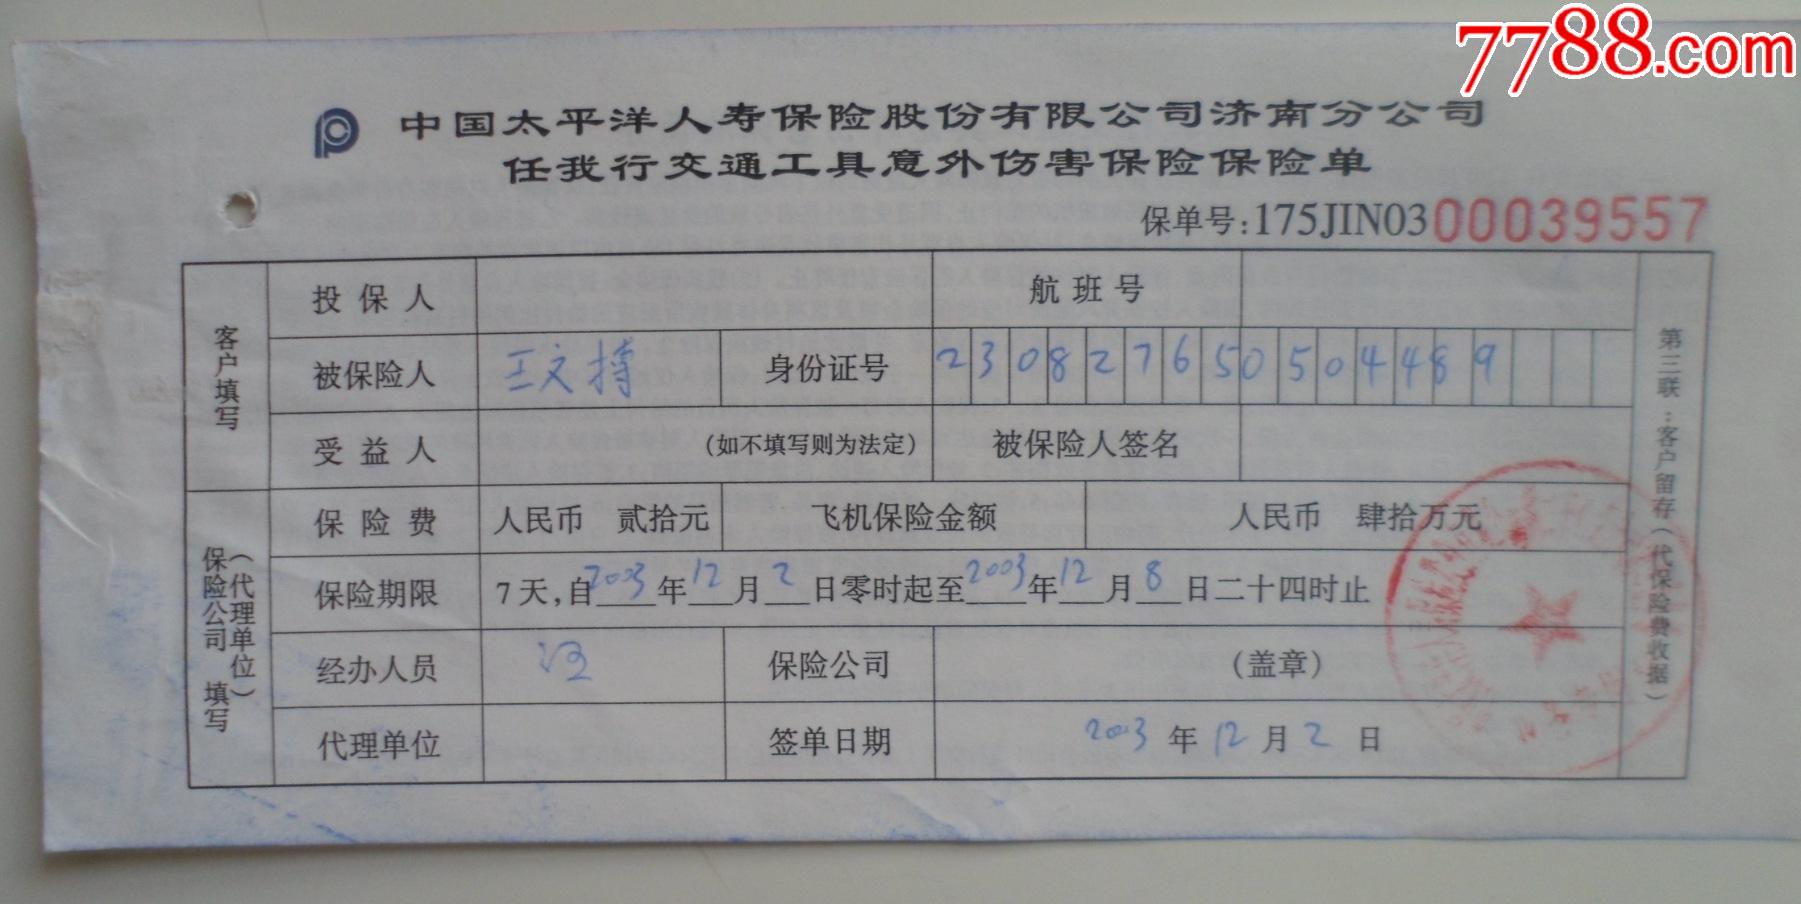 7788.com
中国太平洋人寿保险股份有限公司济南分公司
任我行交通工具意外伤害保险保险单
保单号:175JIN0300039557
客户填写
投保人
航班号
被保险人 王文博
身份证号 230827650504489
受益人 (如不填写则为法定)
被保险人签名
保险公司(代理单位)填写
保险费 人民币 贰拾元
飞机保险金额 人民币 肆拾万元
保险期限 7天,自2003年12月2日零时起至2003年12月8日二十四时止
经办人员
保险公司 (盖章)
代理单位
签单日期 2003年12月2日
第三联:客户留存(代保险费收据)